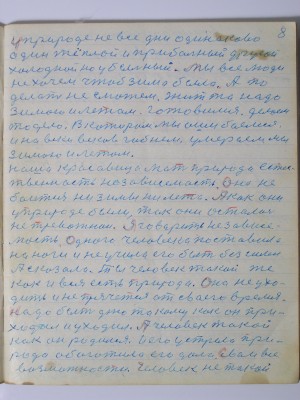 8
у природе не все дни одинаково
один тёплой и прибыльный другой
холодной но убыльный. Мы все люди
не хочем чтоб зима была. А по
делать не сможем, жить та надо
зимою и летом. Готовился, делом
то дело. В котором мы ошибаемся
и на веки веков гибнем, умераем на
зимою и летом.
Наша красавица мать природа естес
твенность независимость. Она не
боится ни зимы ни лета. А как они
у природе были, так они остались
не тревожном. Я говорить независи-
мость одного человека поставила
на ноги и научила его быть без силы
А сказала. Ты человек такой же
как и вся есть природа. Она не ухо-
дить и не прячется от своего время.
Надо быть дню такому как он при-
ходил и уходил. А человек такой
как он родился. И его устрела при-
рода обогатила его дала свои все
возможности. Человек не такой